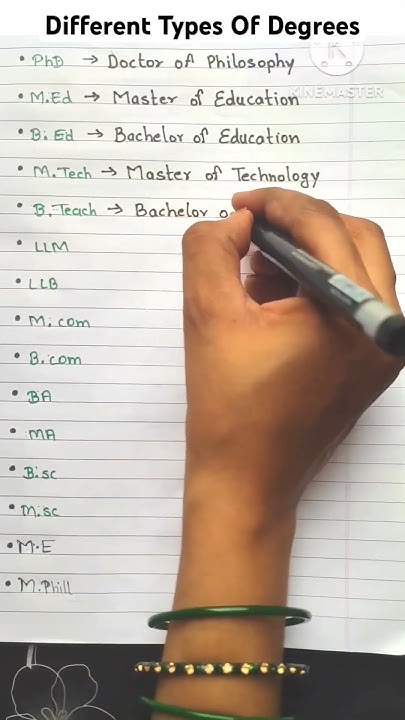 Different Types Of Degrees
• PhD → Doctor of Philosophy
KINEMASTER
• M.Ed → Master of Education
• B.Ed → Bachelor of Education
• M.Tech → Master of Technology
• B.Teach → Bachelor o
• LLM
• LLB
• M.com
• B.com
• BA
• MA
• B.sc
• M.sc
• M.E
• M.Phill